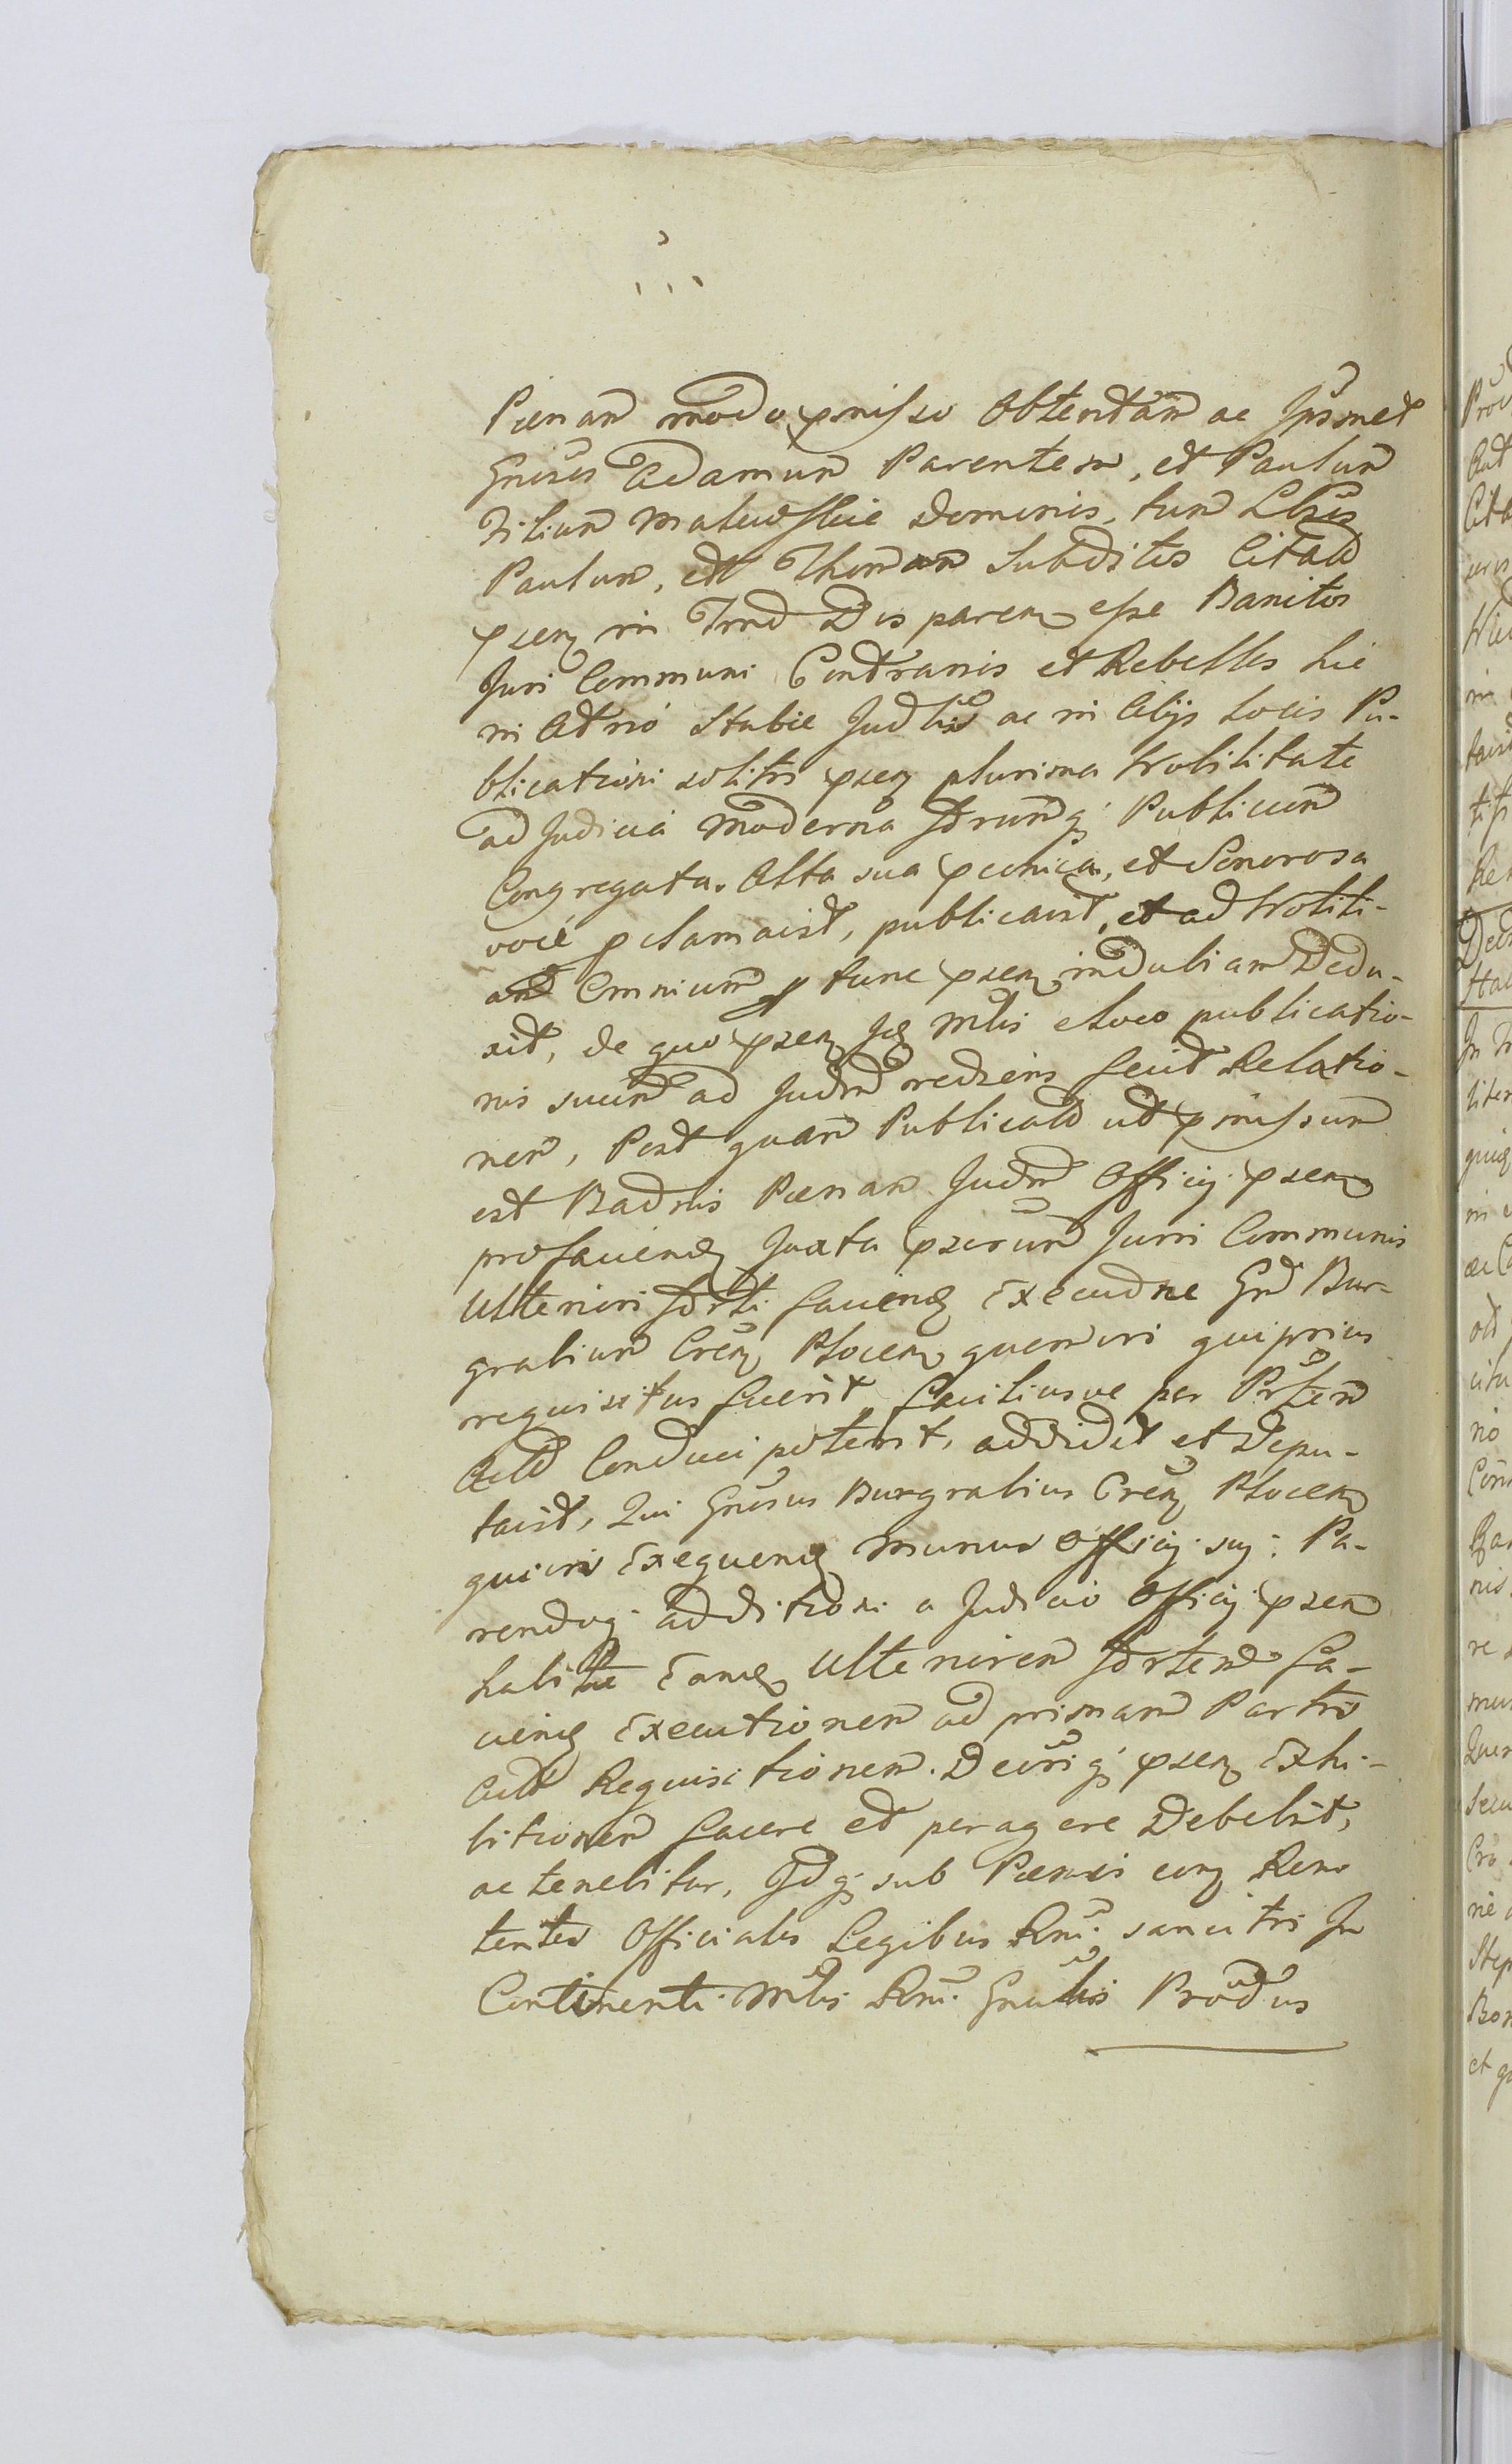 Pænam modo pmisso Obtentam ac Ipsmet
Gnsos Adamum Parentem, et Paulum
Filium Malewskie Dominos, tum Lbos
Paulum, et Thomam Subditos Citatd
psen in Tmd Dis paren esse Banitos
Juri Communi Contrarios et Rebelles hic
in Atrio Stubæ Judlis ac in Alijs Locis Pu-
blicationi solitis psen plurima Nobilitate
ad Judicia Moderna Forumq; Publicum
Congregata. Alta sua pconica, et Sonorosa
voce pclamavit, publicavit, et ad Notiti-
am Omnium tunc psen indubiam Dedu-
xit, de quo psen Idq Mlis eloco publicatio-
nis suum ad Judm rediens fecit Relatio-
nem, Post quam Publicatd ut pmissum
est Badnis Pænam Judm Officij psen
pro faciend Juxta pscrum Juris Communis
Ulteriori forti faciend Executne Gnd Bur-
grabium Cren Plocen quemvis qui prius
requisitus fuerit faciliusve per Prtem
Actd Conduci poterit, addidit et Depu-
tavit, Qui Gnosus Burgrabius Cren Plocen
quivis Exequend munus Officij sui: Pa-
rendoq; additioni a Judicio Officij psen
habitæ Eamq Ulteriorem fortem fa-
ciend Executionem ad primam Partis
Actd Requisitionem. Decriq; psen Exhi-
bitionem facere et peragere Debebit,
ac tenebitur, Idq; sub Pænis conq Reni
tentes Officiales Legibus Rni: sancitis In
Continenti Mlis Rni: Gnalis Produs